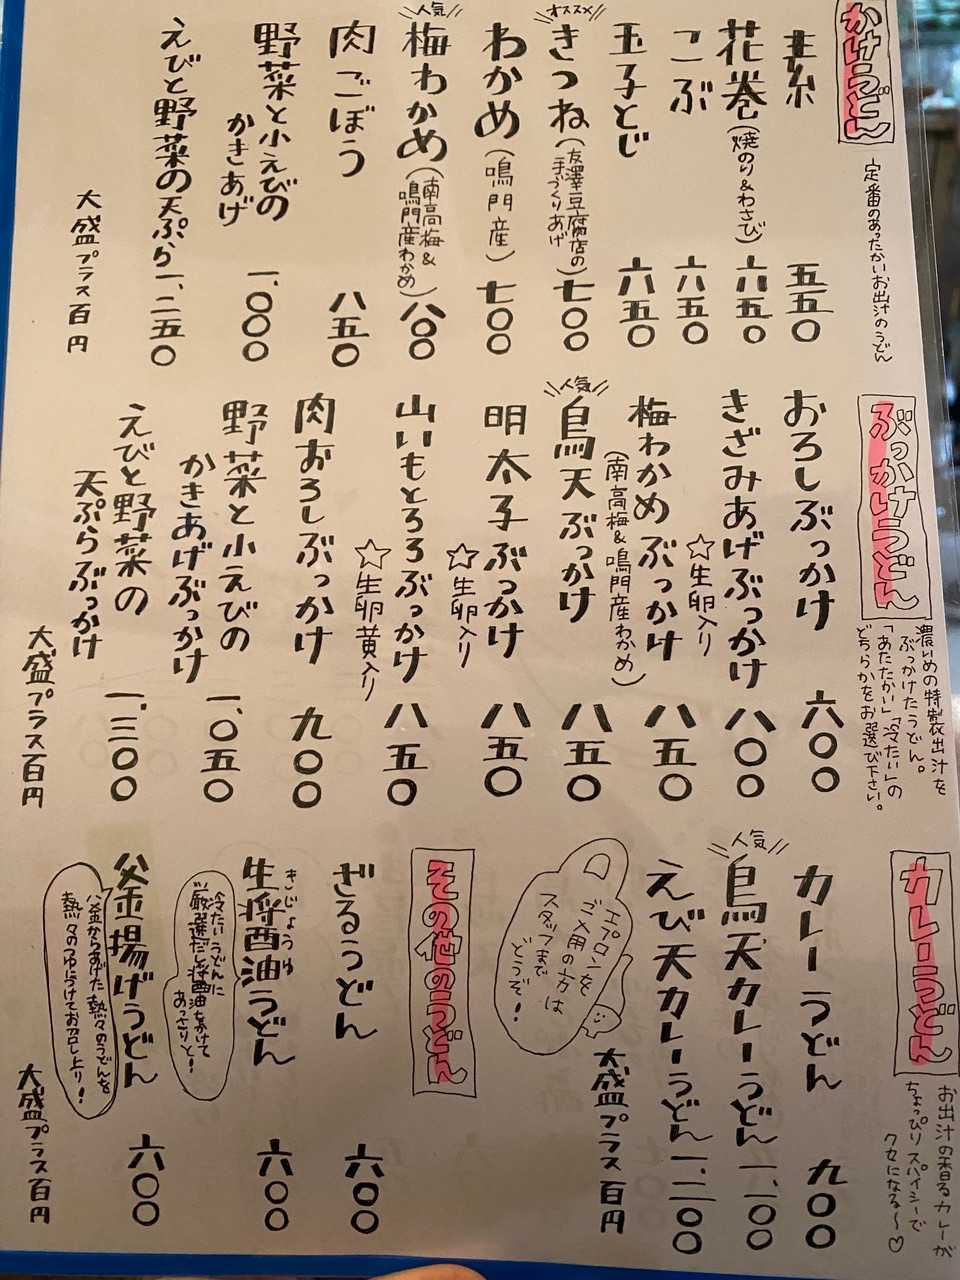 かけうどん
定番のあったかいお出汁のうどん
素 五五〇
花巻(焼のり&わさび) 六五〇
こぶ 六五〇
玉子とじ 六五〇
オススメ
きつね(友澤豆腐店の手づくりあげ) 七〇〇
わかめ(鳴門産) 七〇〇
人気
梅わかめ(南高梅&鳴門産わかめ) 八〇〇
肉ごぼう 八五〇
野菜と小えびの
かきあげ 一、〇〇〇
えびと野菜の天ぷら 一、二五〇
大盛プラス百円
ぶっかけうどん
濃いめの特製出汁を
ぶっかけたうどん。
「あたたかい」「冷たい」の
どちらかをお選び下さい。
おろしぶっかけ 六〇〇
きざみあげぶっかけ 八〇〇
☆生卵入り
梅わかめぶっかけ 八五〇
(南高梅&鳴門産わかめ)
人気
鳥天ぶっかけ 八五〇
明太子ぶっかけ 八五〇
☆生卵入り
山いもとろろぶっかけ 八五〇
☆生卵黄入り
肉おろしぶっかけ 九〇〇
野菜と小えびの
かきあげぶっかけ 一、〇五〇
えびと野菜の
天ぷらぶっかけ 一、三〇〇
大盛プラス百円
カレーうどん
お出汁の香るカレーが
ちょっぴりスパイシーで
クセになる〜♡
カレーうどん 九〇〇
人気
鳥天カレーうどん 一、一〇〇
えび天カレーうどん 一、二〇〇
大盛プラス百円
エプロンを
ご入用の方は
スタッフまで
どうぞ!
その他のうどん
ざるうどん 六〇〇
きじょうゆ
生醤油うどん 六〇〇
冷たいうどんに
厳選だし醤油をかけて
あっさりと!
釜揚げうどん 六〇〇
釜からあげた熱々のうどんを
熱々のつゆにつけてお召し上り!
大盛プラス百円